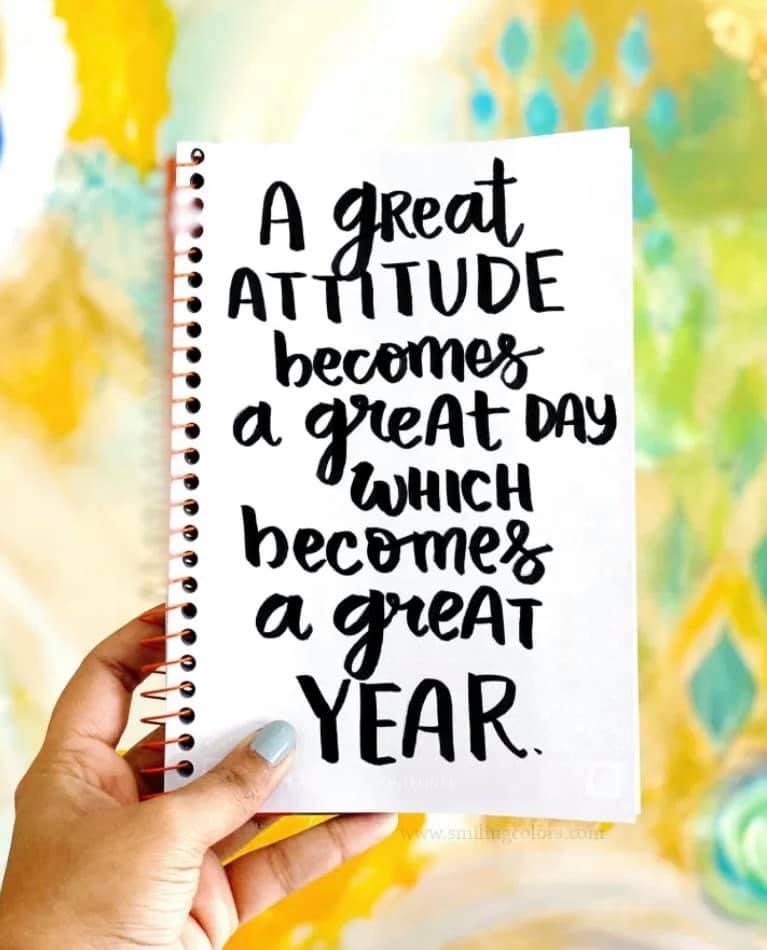 A great
ATTITUDE
becomes
a great DAY
WHICH
becomes
a great
YEAR.
www.smilingcolors.com